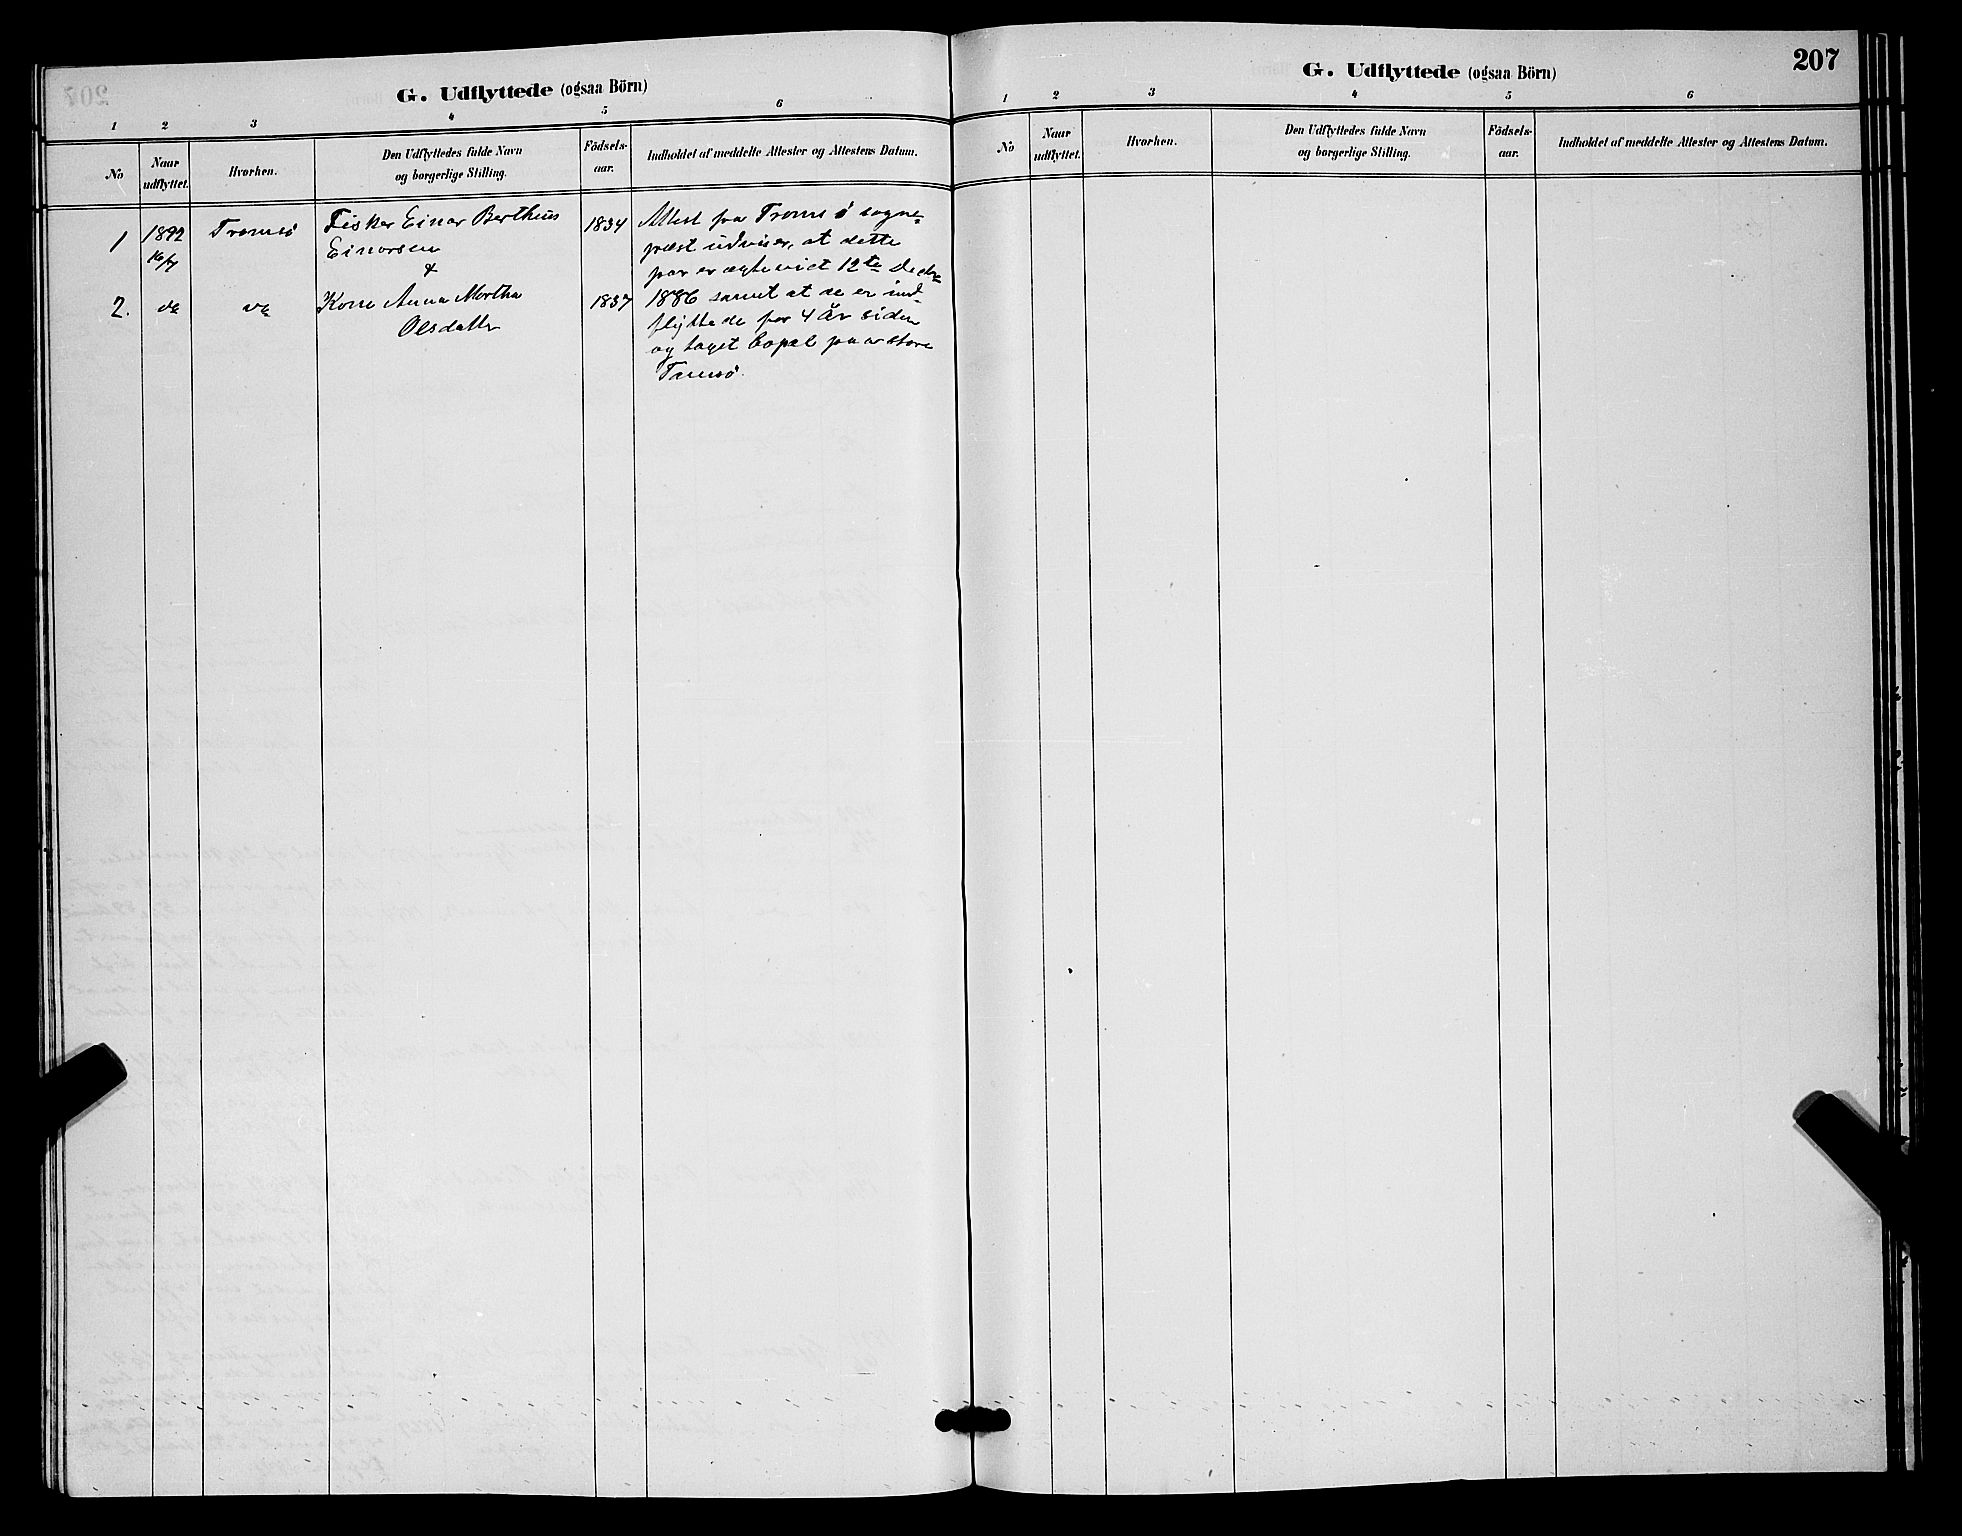 G. Udflyttede (ogsaa Börn)
1 2 3 4 5 6
No Naar udflyttet. Hvorhen. Den Udflyttedes fulde Navn og borgerlige Stilling. Födsels-aar. Indholdet af meddelte Attester og Attestens Datum.
1 1892 Tromsö Fisker Einar Bertheus 1834 Attest fra Tromsö sogne-
Einarsen præst udviser, at dette
& par er ægteviet 12te Decbr
2. do do Kone Anna Martha 1837 1886 samt at de er ind-
Olsdatter flyttede for 4 År siden
og taget bopæl paa store
Tamsö.
G. Udflyttede (ogsaa Börn)
207
1 2 3 4 5 6
No Naar udflyttet. Hvorhen. Den Udflyttedes fulde Navn og borgerlige Stilling. Födsels-aar. Indholdet af meddelte Attester og Attestens Datum.